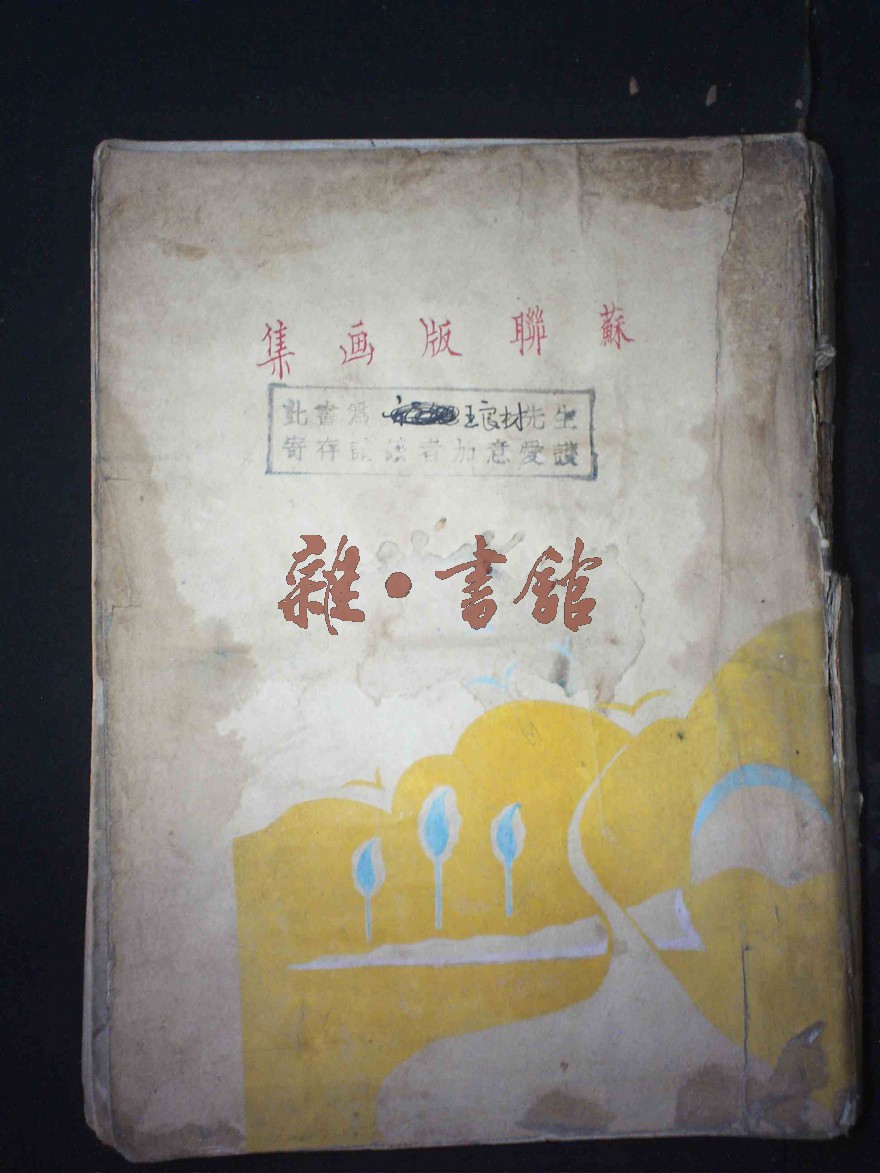 蘇聯版画集
此書為王良材先生
寄存請讀者加意愛護
雜·書館